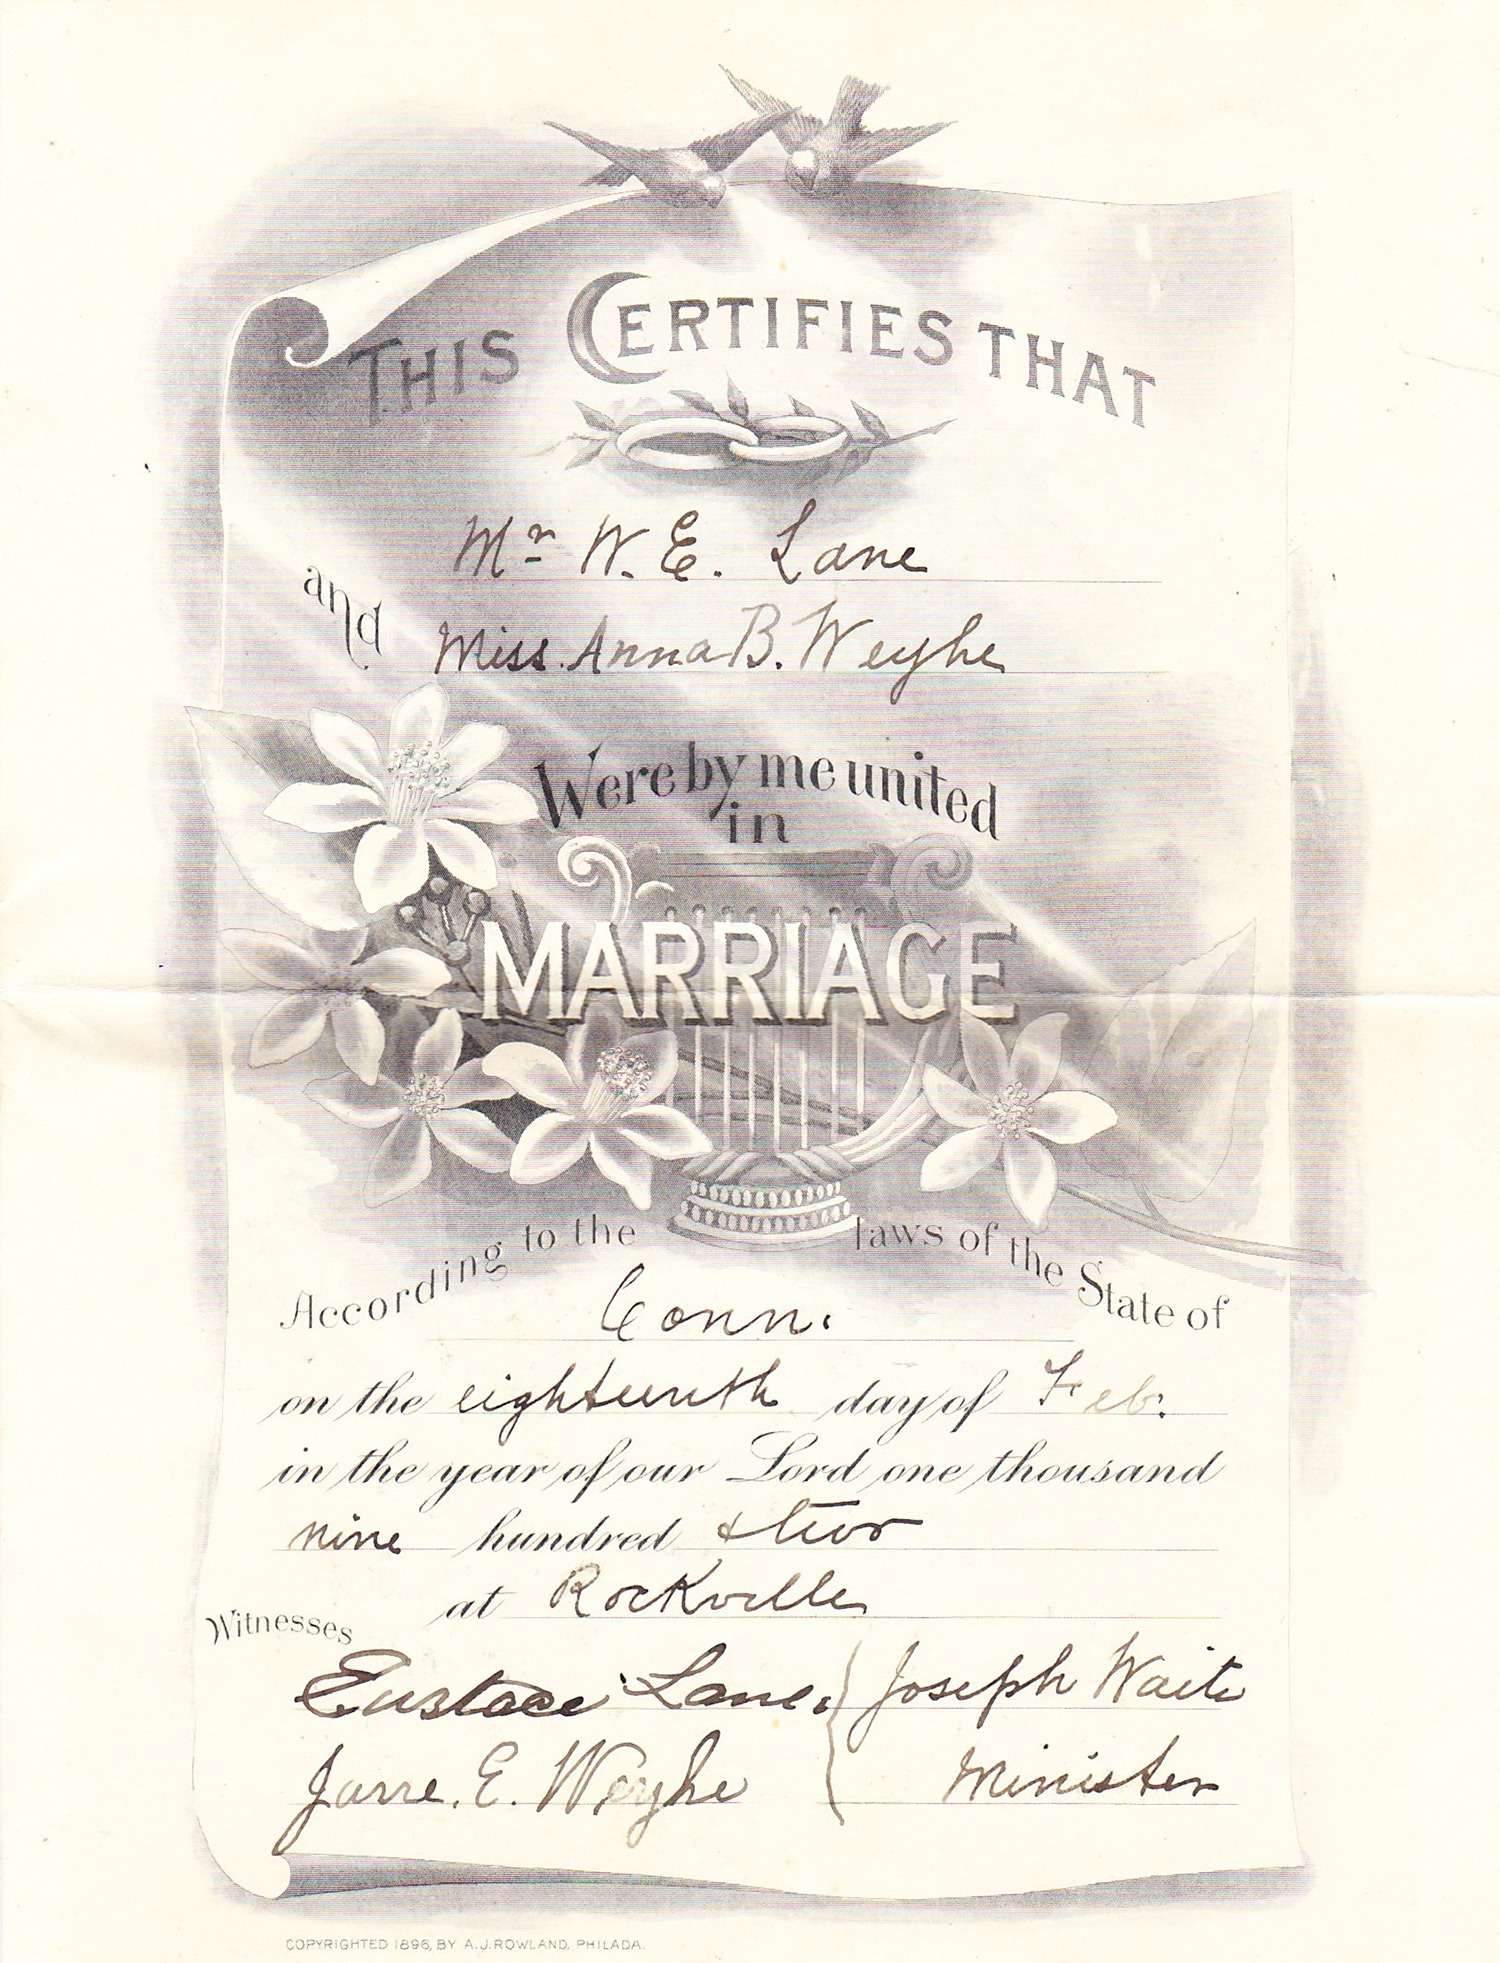 THIS CERTIFIES THAT
Mr W. E. Lane
and
Miss. Anna B. Weyhe
Were by me united
in
MARRIAGE
According to the laws of the State of
Conn.
on the eighteenth day of Feb.
in the year of our Lord one thousand
nine hundred & two
at Rockville
Witnesses
Eustace Lane. Joseph Waite
E. Weyhe Minister
COPYRIGHTED 1896, BY A.J. ROWLAND, PHILADA.